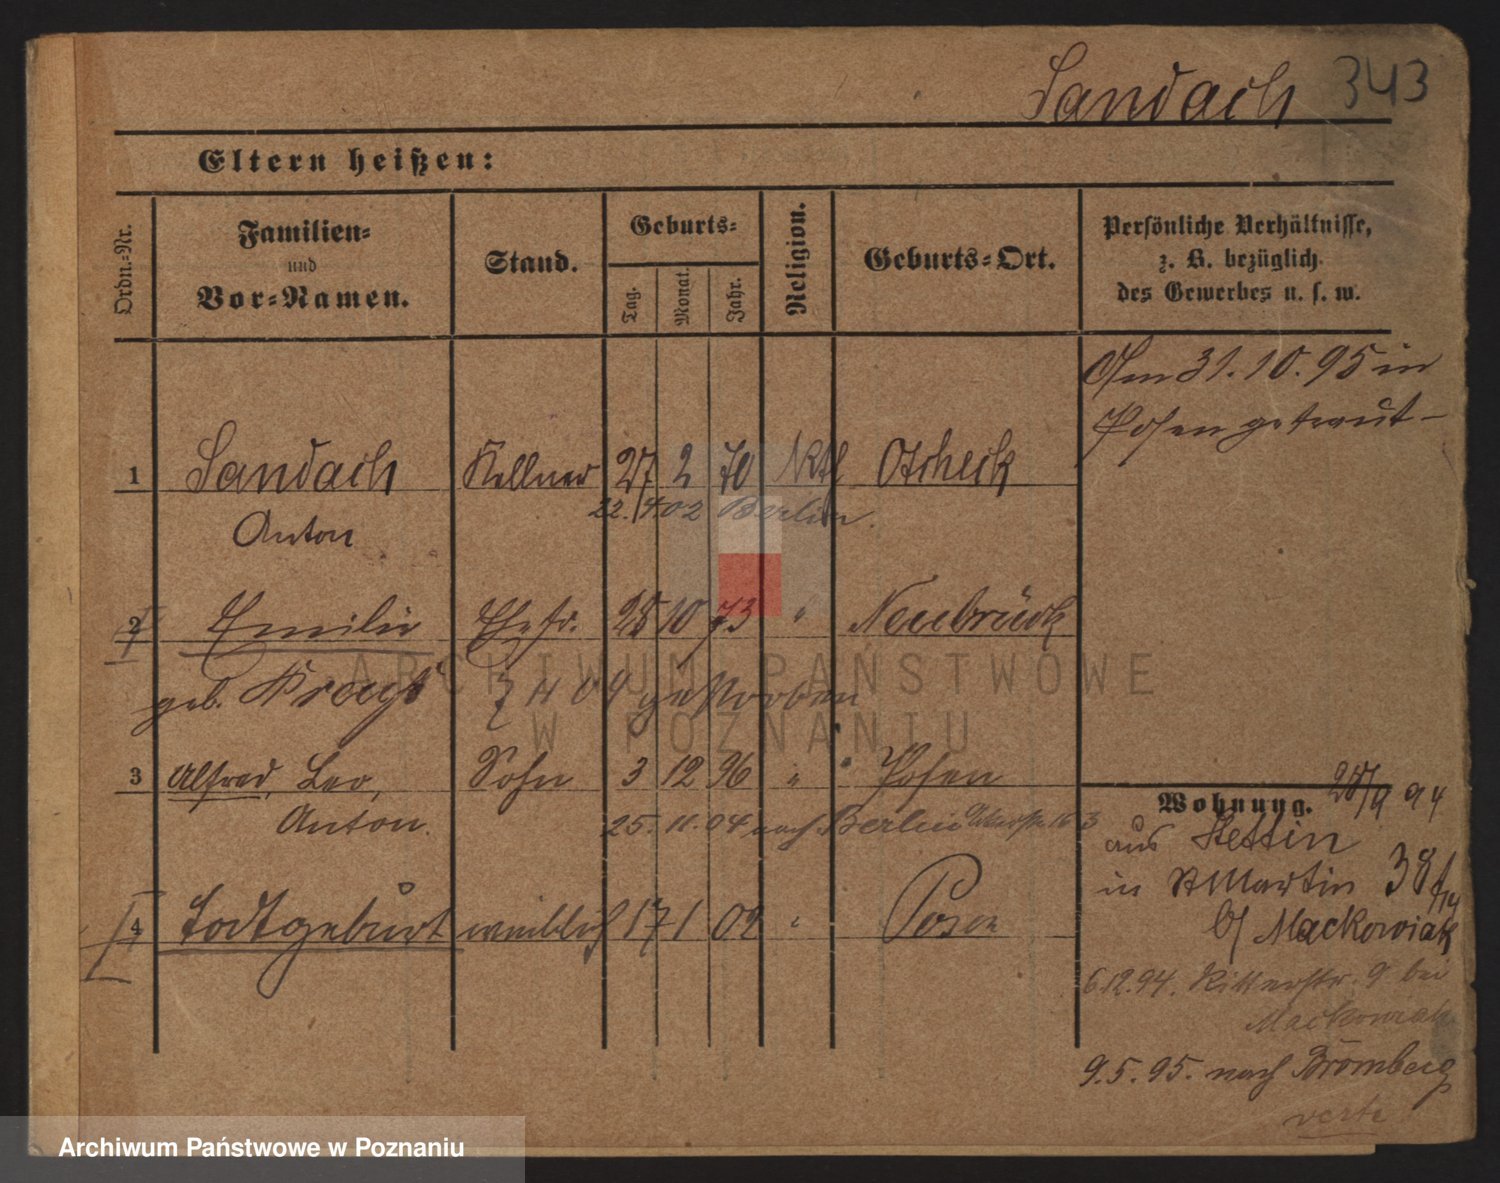 Sandach 343
Eltern heißen:
Ordn.-Nr.
Familien-
und
Vor-Namen.
Stand.
Geburts-
Tag.
Monat.
Jahr.
Religion.
Geburts-Ort.
Persönliche Verhältnisse,
z. B. bezüglich
des Gewerbes u. s. w.
Am 31.10.95 in
Posen getraut-
1 Sandach Kellner 27 2 70 Ktl
Anton
22. 4 02 Berlin.
2 Emilie Ehefr. 28 10 73 " Neubrück
geb.
7 11 04 gestorben
3 Alfred, Leo, Sohn 3 12 96 " Posen
Anton.
25. 11. 04 nach Berlin
4 Todtgeburt weiblich 17 1 02 " Posen
Wohnung. 28/9 94
aus Stettin
in St Martin 38
b/ Mackowiak
6.12.94. Ritterstr. 9 bei
Mackowiak
9.5.95. nach Bromberg
verte
ARCHIWUM PAŃSTWOWE
W POZNANIU
Archiwum Państwowe w Poznaniu